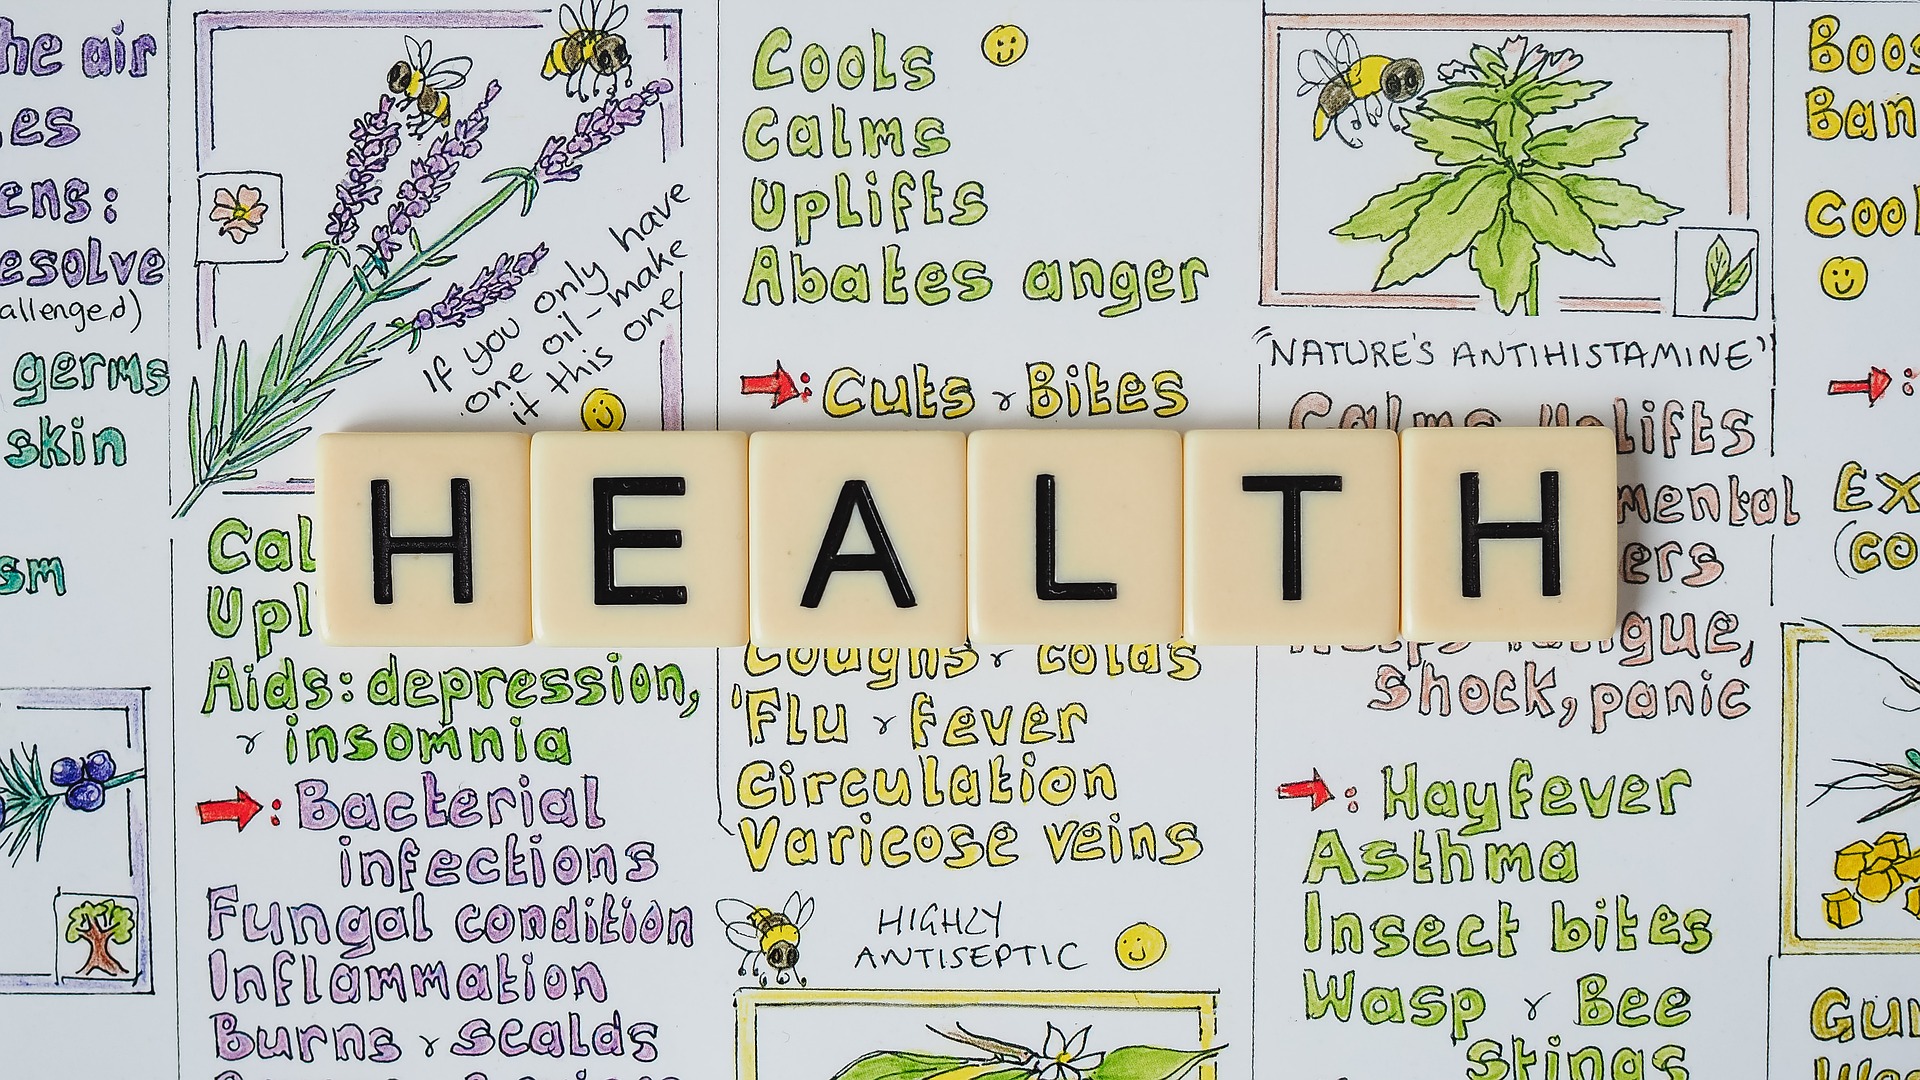 he air
es
ens:
esolve
allenged)
germs
skin
sm
If you only have
one oil - make
it this one
Cal
Upl
Aids: depression,
& insomnia
: Bacterial
infections
Fungal condition
Inflammation
Burns & scalds
Cools
Calms
Uplifts
Abates anger
: Cuts & Bites
HEALTH
Coughs & colds
'Flu & fever
Circulation
Varicose veins
HIGHLY
ANTISEPTIC
"NATURE'S ANTIHISTAMINE"
Calms Uplifts
mental
ers
Helps fatigue,
shock, panic
: Hayfever
Asthma
Insect bites
Wasp & Bee
stings
Boos
Ban
Cool
:
Ex
(co
Gu